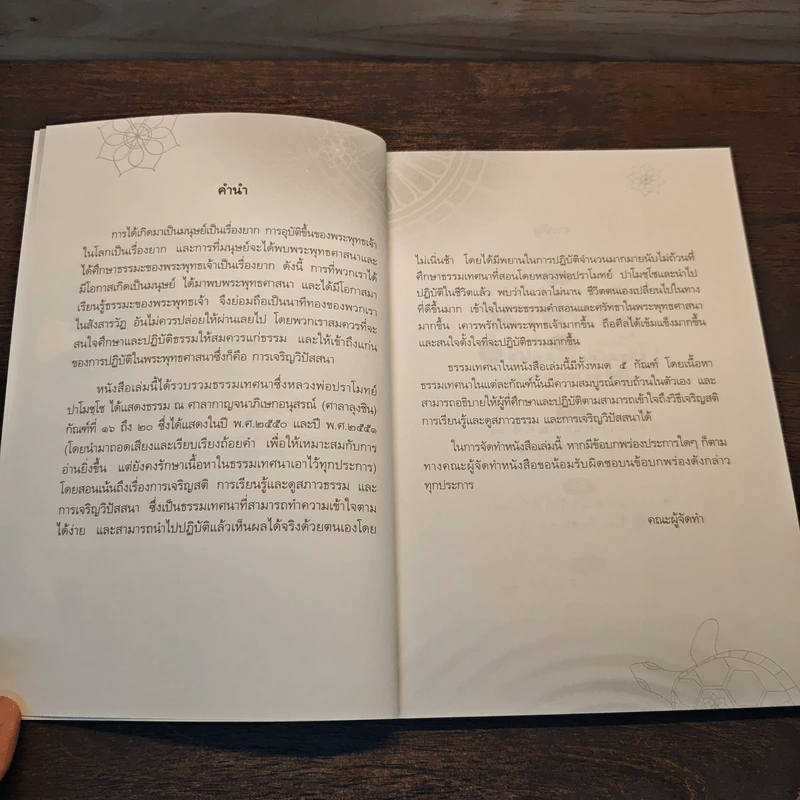 คำนำ
การได้เกิดมาเป็นมนุษย์เป็นเรื่องยาก การอุบัติขึ้นของพระพุทธเจ้า
ในโลกเป็นเรื่องยาก และการที่มนุษย์จะได้พบพระพุทธศาสนาและ
ได้ศึกษาธรรมะของพระพุทธเจ้าเป็นเรื่องยาก ดังนี้ การที่พวกเราได้
มีโอกาสเกิดเป็นมนุษย์ ได้มาพบพระพุทธศาสนา และได้มีโอกาสมา
เรียนรู้ธรรมะของพระพุทธเจ้า จึงย่อมถือเป็นนาทีทองของพวกเรา
ในสังสารวัฏ อันไม่ควรปล่อยให้ผ่านเลยไป โดยพวกเราสมควรที่จะ
สนใจศึกษาและปฏิบัติธรรมให้สมควรแก่ธรรม และให้เข้าถึงแก่น
ของการปฏิบัติในพระพุทธศาสนาซึ่งก็คือ การเจริญวิปัสสนา
หนังสือเล่มนี้ได้รวบรวมธรรมเทศนาซึ่งหลวงพ่อปราโมทย์
ปาโมชฺโช ได้แสดงธรรม ณ ศาลากาญจนาภิเษกอนุสรณ์ (ศาลาลุงชิน)
กัณฑ์ที่ ๑๖ ถึง ๒๐ ซึ่งได้แสดงในปี พ.ศ.๒๕๕๐ และปี พ.ศ.๒๕๕๑
(โดยนำมาถอดเสียงและเรียบเรียงถ้อยคำ เพื่อให้เหมาะสมกับการ
อ่านยิ่งขึ้น แต่ยังคงรักษาเนื้อหาในธรรมเทศนาเอาไว้ทุกประการ)
โดยสอนเน้นถึงเรื่องการเจริญสติ การเรียนรู้และดูสภาวธรรม และ
การเจริญวิปัสสนา ซึ่งเป็นธรรมเทศนาที่สามารถทำความเข้าใจตาม
ได้ง่าย และสามารถนำไปปฏิบัติแล้วเห็นผลได้จริงด้วยตนเองโดย
ไม่เนิ่นช้า โดยได้มีพยานในการปฏิบัติจำนวนมากมายนับไม่ถ้วนที่
ศึกษาธรรมเทศนาที่สอนโดยหลวงพ่อปราโมทย์ ปาโมชฺโชและนำไป
ปฏิบัติในชีวิตแล้ว พบว่าในเวลาไม่นาน ชีวิตตนเองเปลี่ยนไปในทาง
ที่ดีขึ้นมาก เข้าใจในพระธรรมคำสอนและศรัทธาในพระพุทธศาสนา
มากขึ้น เคารพรักในพระพุทธเจ้ามากขึ้น ถือศีลได้เข้มแข็งมากขึ้น
และสนใจตั้งใจที่จะปฏิบัติธรรมมากขึ้น
ธรรมเทศนาในหนังสือเล่มนี้มีทั้งหมด ๕ กัณฑ์ โดยเนื้อหา
ธรรมเทศนาในแต่ละกัณฑ์นั้นมีความสมบูรณ์ครบถ้วนในตัวเอง และ
สามารถอธิบายให้ผู้ที่ศึกษาและปฏิบัติตามสามารถเข้าใจถึงวิธีเจริญสติ
การเรียนรู้และดูสภาวธรรม และการเจริญวิปัสสนาได้
ในการจัดทำหนังสือเล่มนี้ หากมีข้อบกพร่องประการใดๆ ก็ตาม
ทางคณะผู้จัดทำหนังสือขอน้อมรับผิดชอบในข้อบกพร่องดังกล่าว
ทุกประการ
คณะผู้จัดทำ